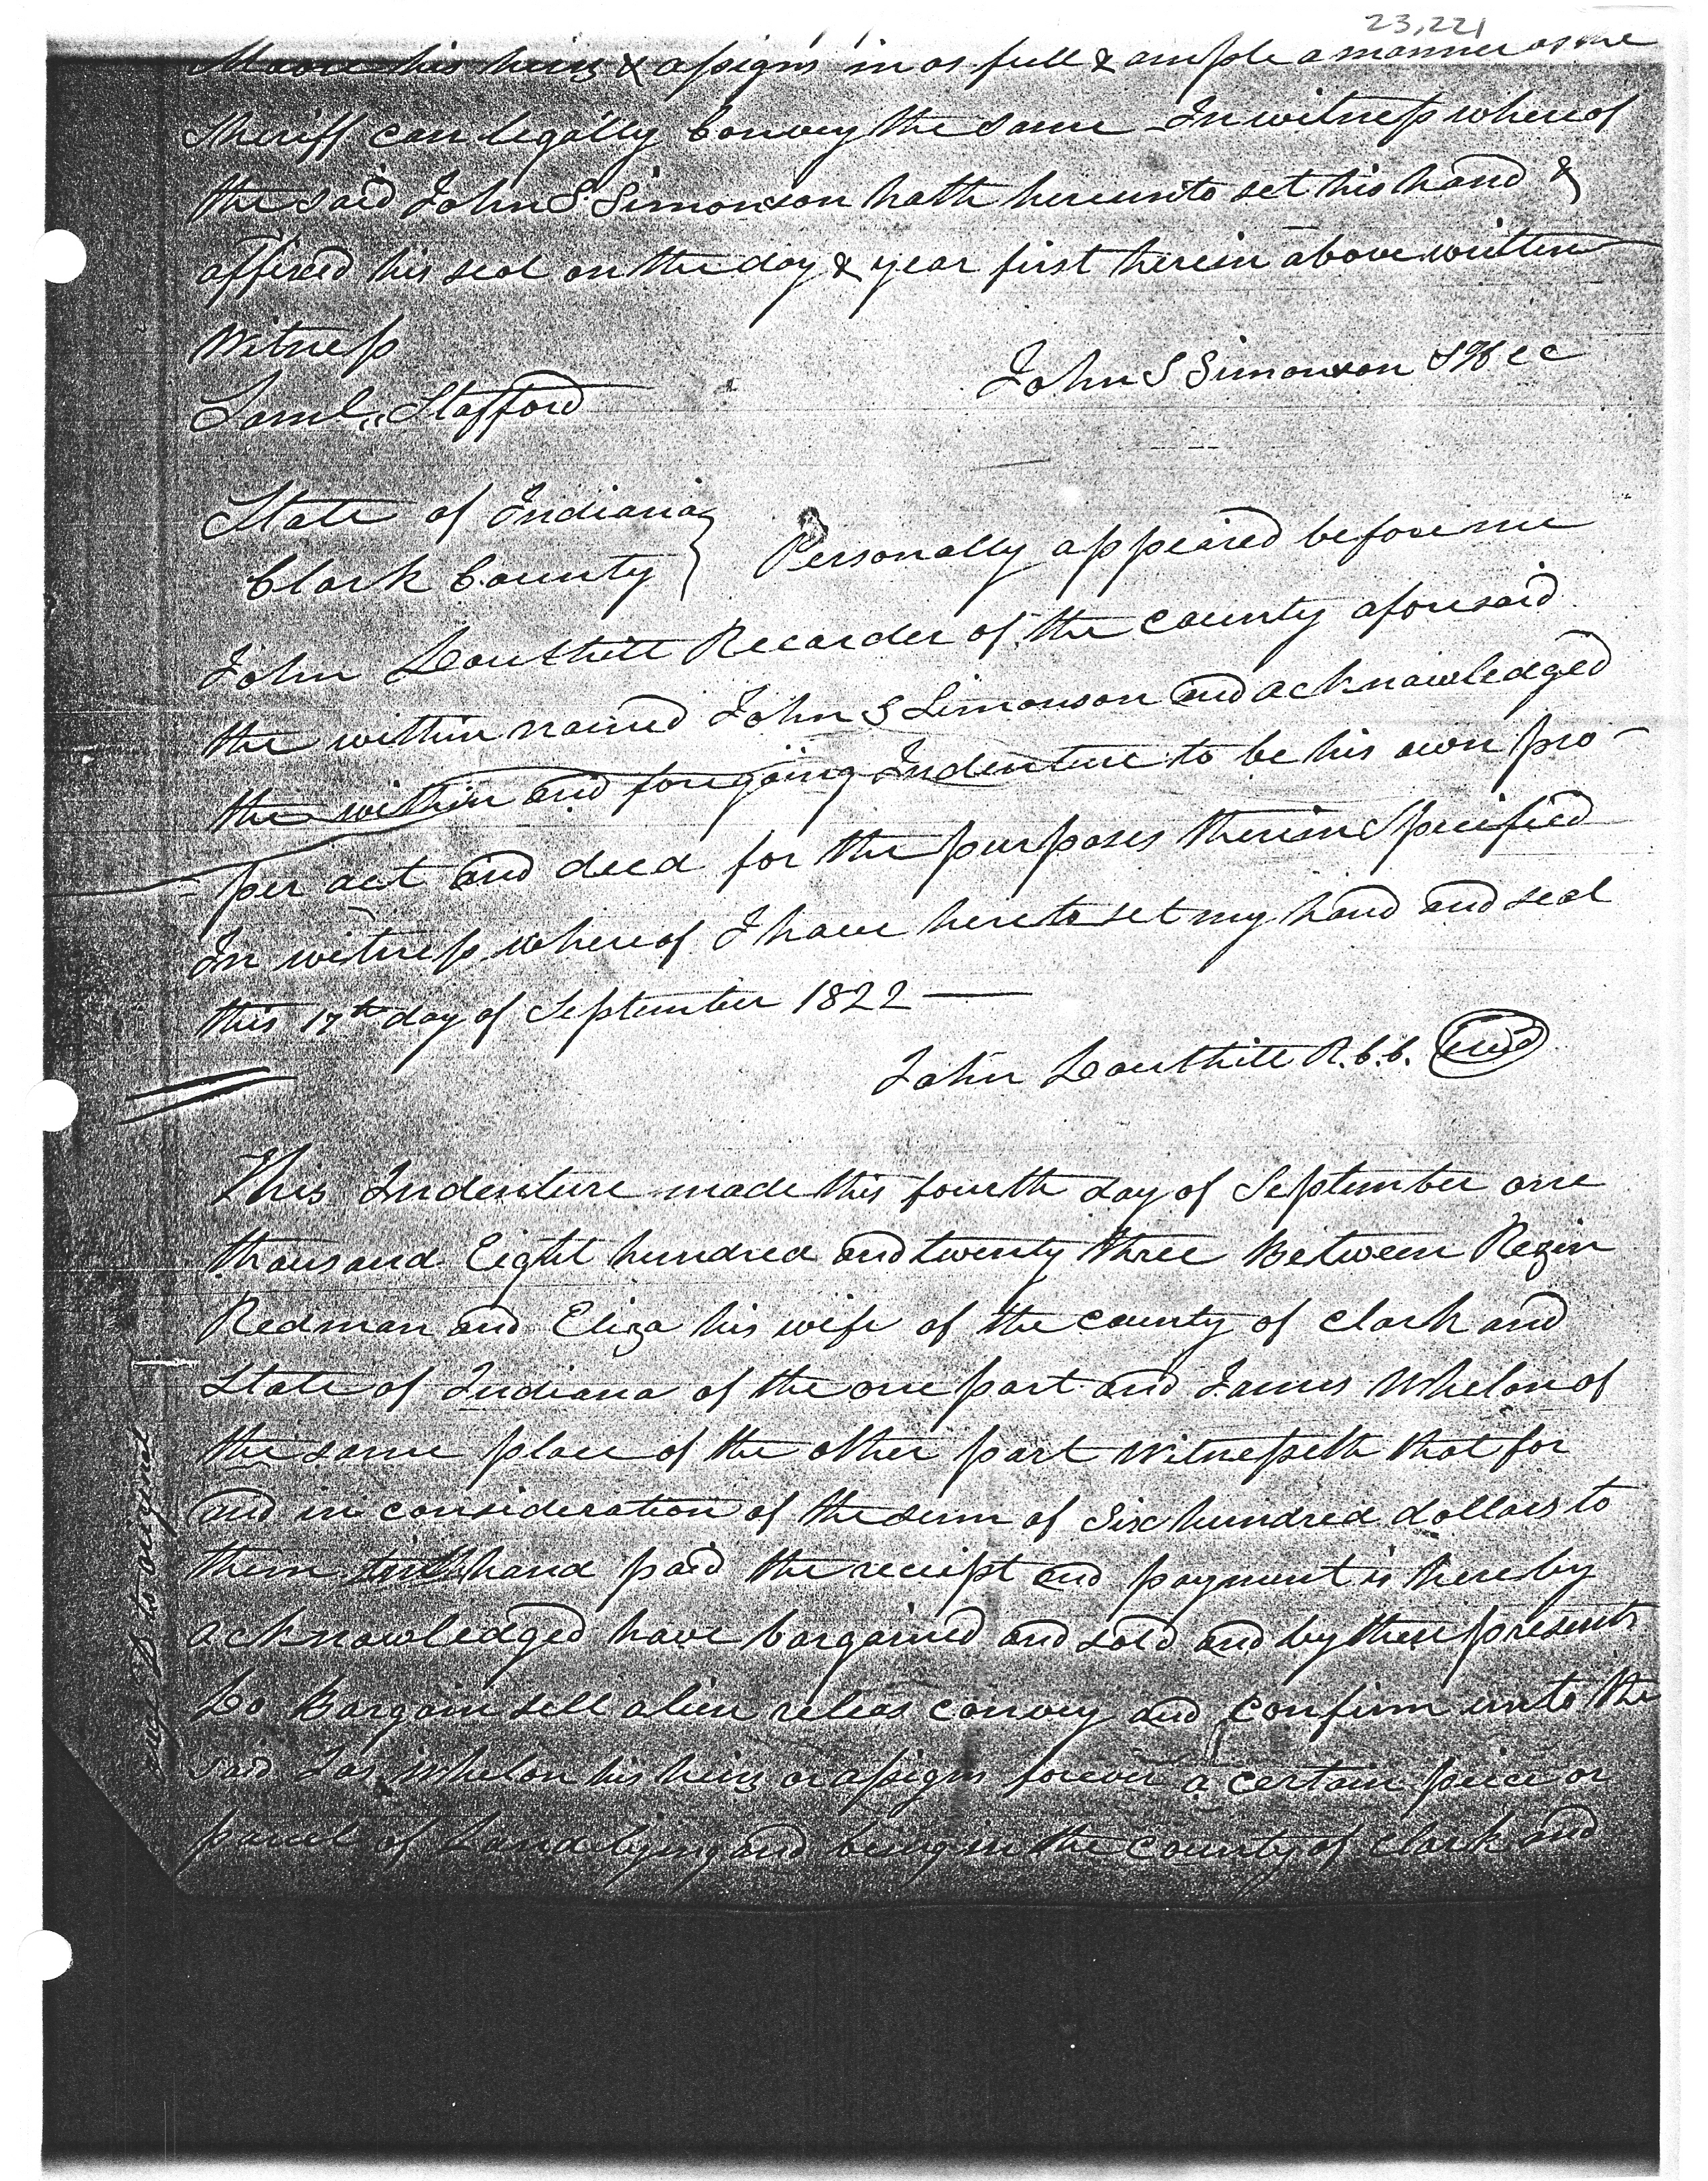 23,221
Moore his heirs & assigns in as full & ample a manner as the
Sheriff can legally Convey the same - In witness whereof
the said John S Simonson hath hereunto set his hand &
affixed his seal on the day & year first herein above written
Witness
Saml. Stafford
John S Simonson
State of Indiana
Clark County } Personally appeared before me
John Douthitt Recorder of the County aforesaid
the within named John S Simonson and acknowledged
the within and foregoing Indenture to be his own pro-
per act and deed for the purposes therein Specified
In witness whereof I have hereto set my hand and seal
this 17th day of September 1822 —
John Douthitt R.C.C. Seal
This Indenture made this fourth day of September one
thousand Eight hundred and twenty three Between Rezin
Redman and Eliza his wife of the County of Clark and
State of Indiana of the one part and James Whelon of
the same place of the other part Witnesseth that for
and in consideration of the sum of Six hundred dollars to
them hand paid the receipt and payment is hereby
acknowledged have bargained and sold and by these presents
Do Bargain sell alien releas convey and confirm unto the
said Jas Whelon his heirs or assigns forever a certain peice or
parcel of Land lying and being in the County of Clark and
to original